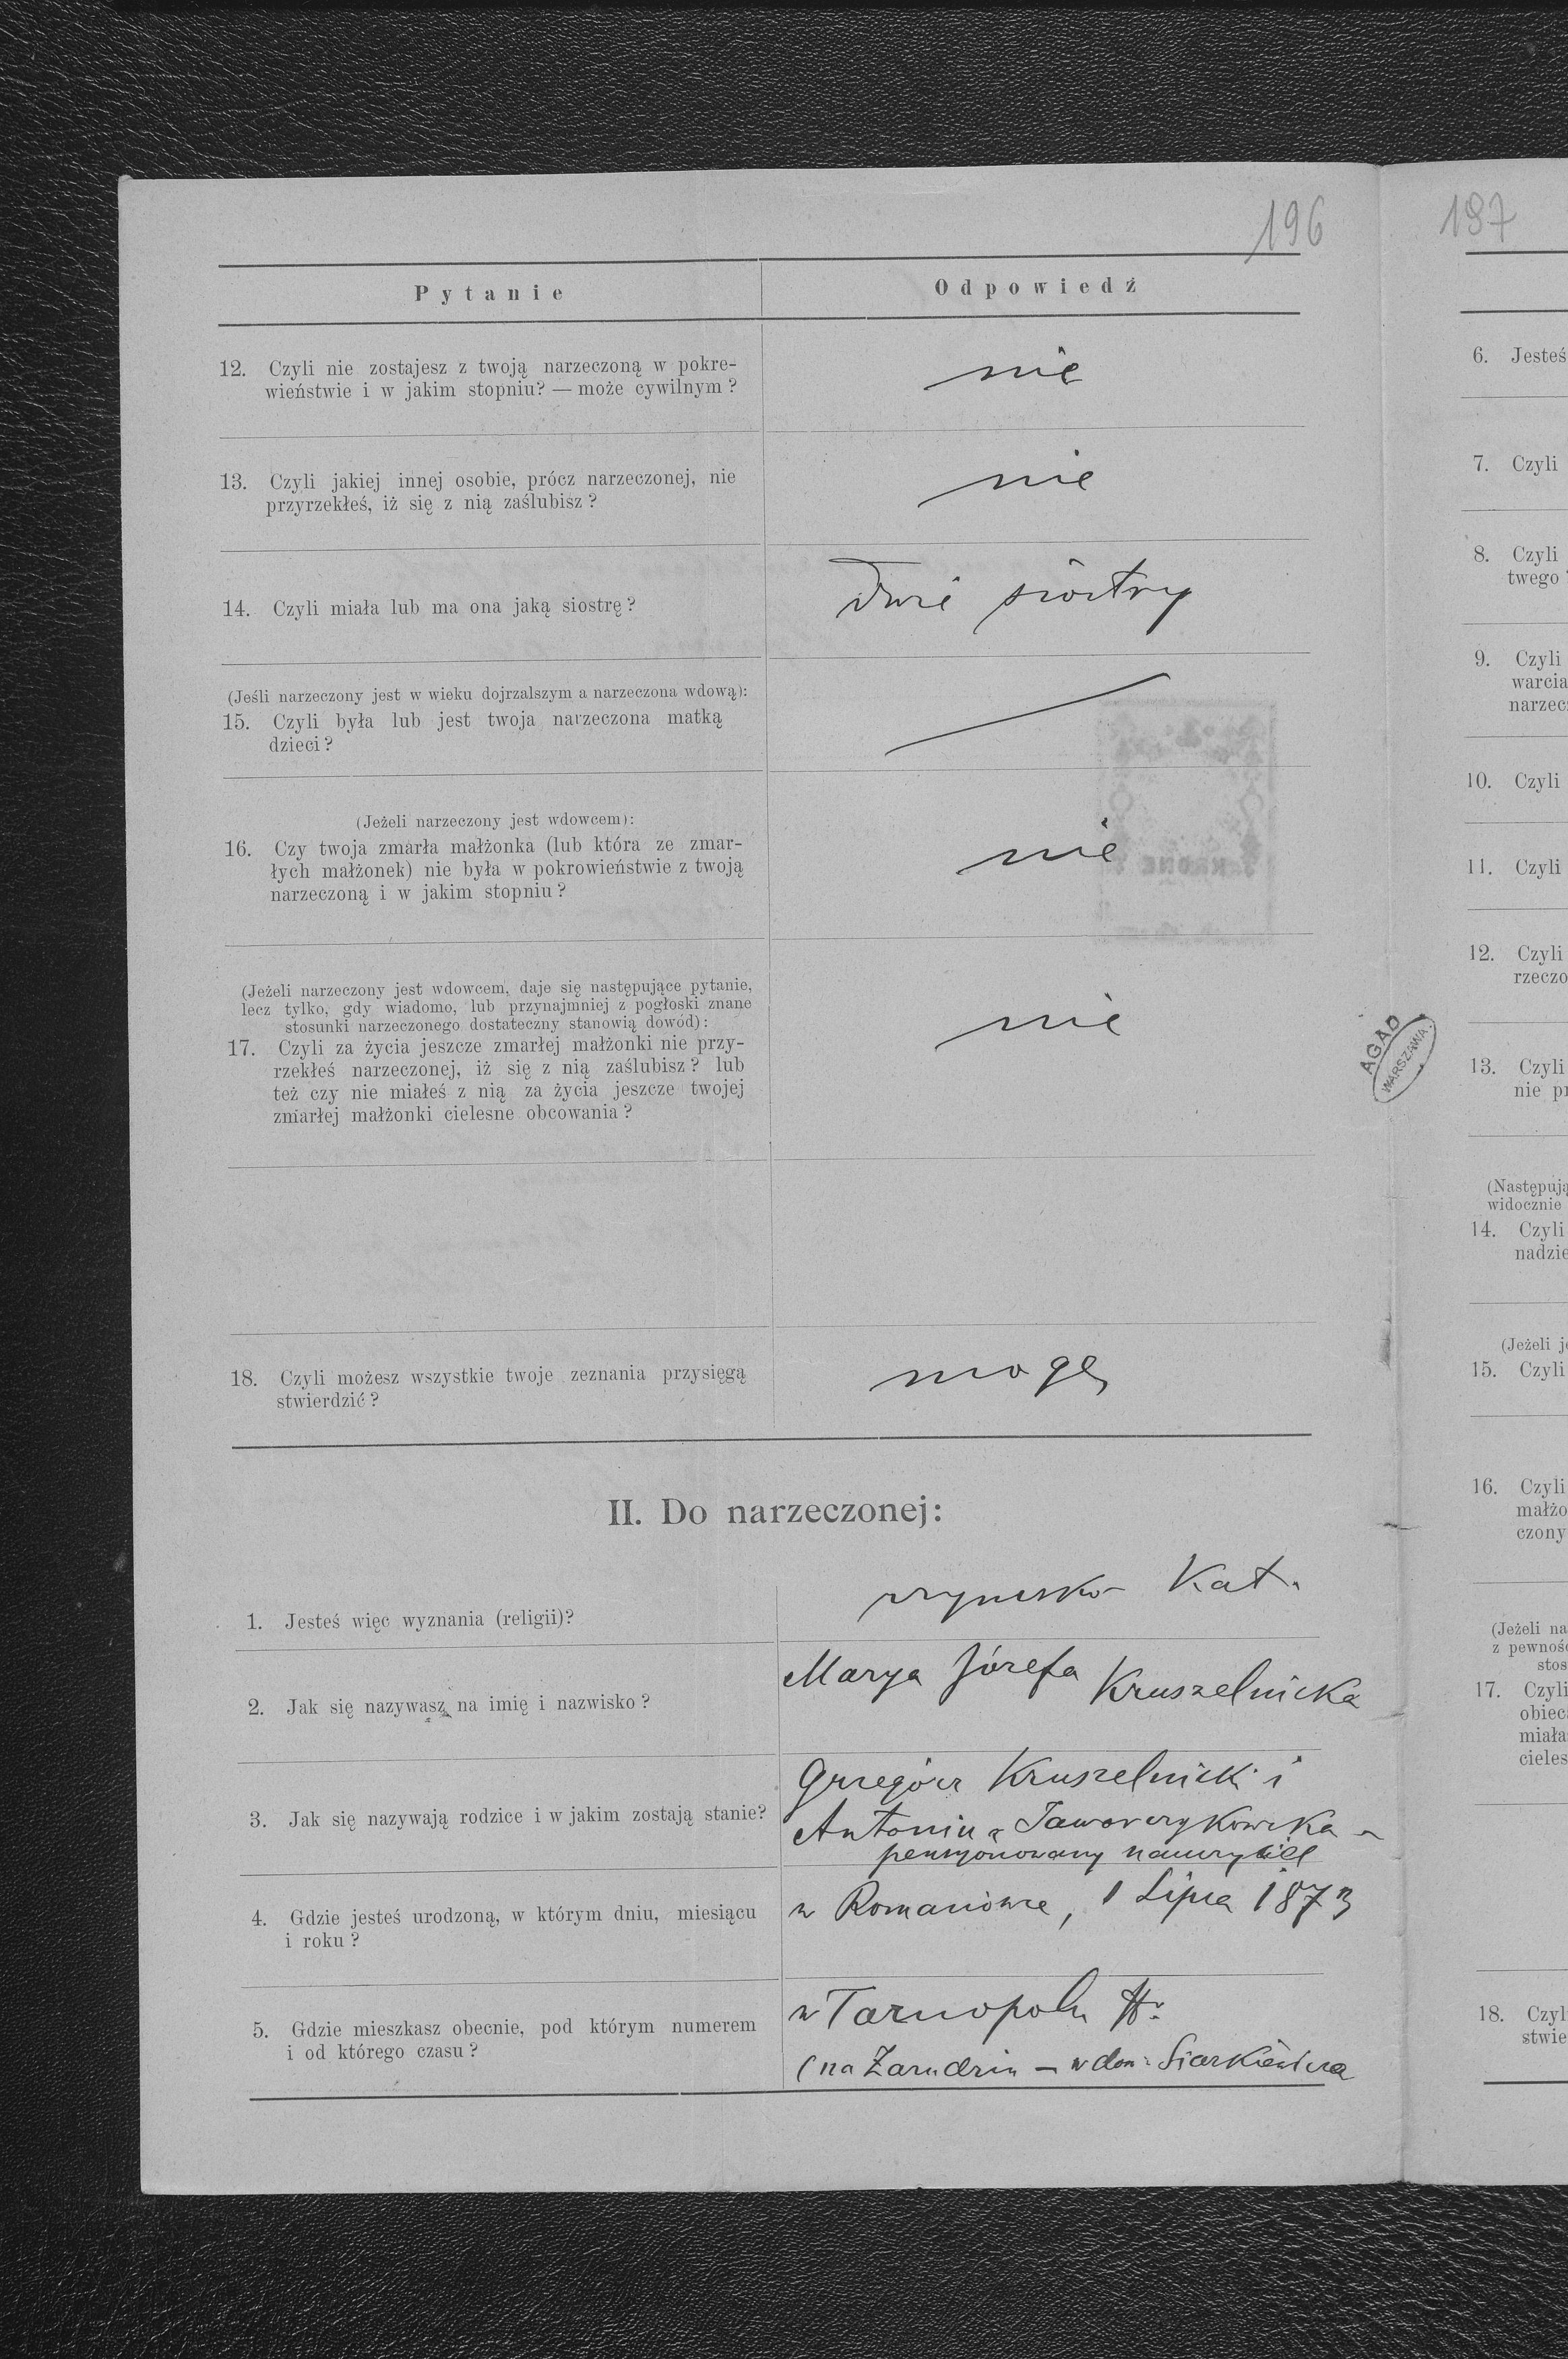 196
Pytanie
Odpowiedź
12. Czyli nie zostajesz z twoją narzeczoną w pokre-
wieństwie i w jakim stopniu? — może cywilnym?
nie
13. Czyli jakiej innej osobie, prócz narzeczonej, nie
przyrzekłeś, iż się z nią zaślubisz?
nie
14. Czyli miała lub ma ona jaką siostrę?
dwie siostry
(Jeśli narzeczony jest w wieku dojrzalszym a narzeczona wdową):
15. Czyli była lub jest twoja narzeczona matką
dzieci?
(Jeżeli narzeczony jest wdowcem):
16. Czy twoja zmarła małżonka (lub która ze zmar-
łych małżonek) nie była w pokrowieństwie z twoją
narzeczoną i w jakim stopniu?
nie
(Jeżeli narzeczony jest wdowcem, daje się następujące pytanie,
lecz tylko, gdy wiadomo, lub przynajmniej z pogłoski znane
stosunki narzeczonego dostateczny stanowią dowód):
17. Czyli za życia jeszcze zmarłej małżonki nie przy-
rzekłeś narzeczonej, iż się z nią zaślubisz? lub
też czy nie miałeś z nią za życia jeszcze twojej
zmarłej małżonki cielesne obcowania?
nie
18. Czyli możesz wszystkie twoje zeznania przysięgą
stwierdzić?
mogę
II. Do narzeczonej:
1. Jesteś więc wyznania (religii)?
rzymsko Kat.
2. Jak się nazywasz na imię i nazwisko?
Marya Józefa Kruszelnicka
3. Jak się nazywają rodzice i w jakim zostają stanie?
Grzegórz Kruszelnicki i
Antonina
pensyonowany nauczyciel
4. Gdzie jesteś urodzoną, w którym dniu, miesiącu
i roku?
w Romanówce, 1 Lipca 1873
5. Gdzie mieszkasz obecnie, pod którym numerem
i od którego czasu?
w Tarnopolu
(na Zarudziu — w dom: Siarkiewicza
AGAD
WARSZAWA
187
6. Jesteś
7. Czyli
8. Czyli
twego
9. Czyli
warcia
narzec
10. Czyli
11. Czyli
12. Czyli
rzeczo
13. Czyli
nie pr
(Następują
widocznie
14. Czyli
nadzie
(Jeżeli je
15. Czyli
16. Czyli
małżo
czony
(Jeżeli na
z pewnoś
stos
17. Czyli
obiec
miała
cieles
18. Czyl
stwie